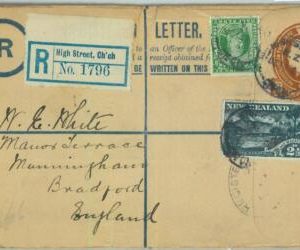 R
LETTER.
R High Street, Ch'ch
No. 1796
to an Officer of the
receipt obtained f
BE WRITTEN ON THIS
W. E. White
Manor Terrace
Manningham
Bradford
England
NEW ZEALAND
2½